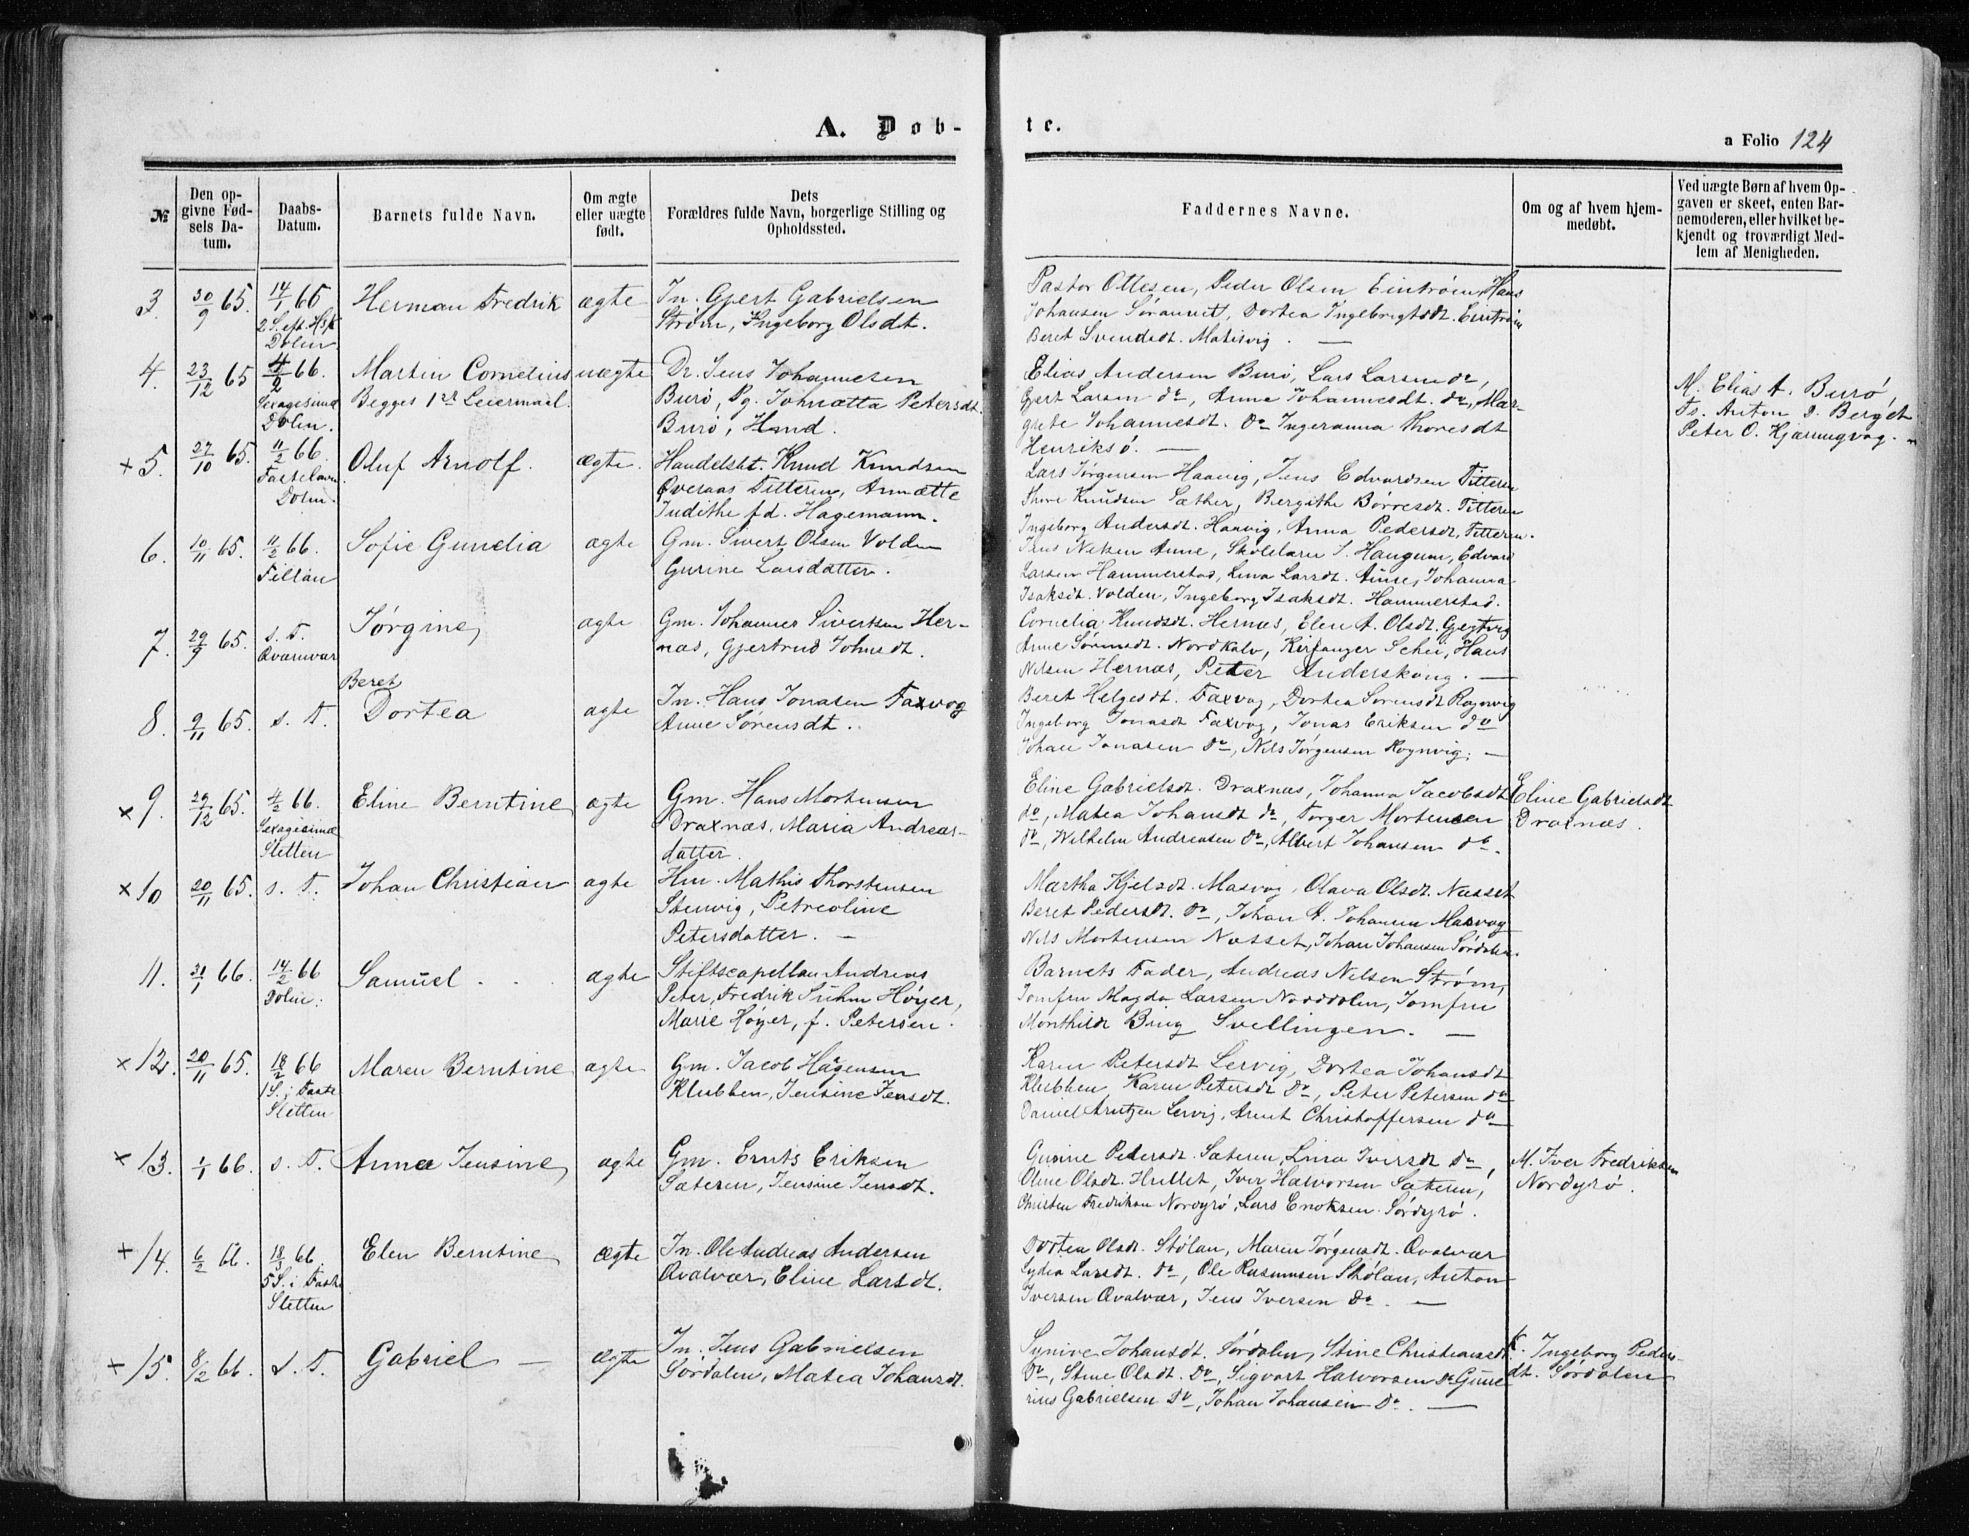 A. Døb-
te.
a Folio 124
№
Den op-
givne Fød-
sels Da-
tum.
Daabs-
Datum.
Barnets fulde Navn.
Om ægte
eller uægte
født.
Dets
Forældres fulde Navn, borgerlige Stilling og
Opholdssted.
Faddernes Navne.
Om og af hvem hjem-
medøbt.
Ved uægte Børn af hvem Op-
gaven er skeet, enten Bar-
nemoderen, eller hvilket be-
kjendt og troværdigt Med-
lem af Menigheden.
3. 30/9 65. 14/1 65 Herman Fredrik ægte In. Gjert Gabrielsen
2 S. eft. H3K
Dolm
Strøm, Ingeborg Olsdt.
Pastor Ottesen, Peder Olsen Hans
Johansen Dortea Ingebrigtsdt.
Beret Svendsdt.
4. 23/12 65 4/2 66. Martin Cornelius uægte Dr. Jens Johannesen
Sexagesima
Dolm.
Begges 1ste Leiermaal.
Burø, Pg. Petersdt.
Burø,
Elias Andersen Burø, Lars Larsen do,
Gjert Larsen do, Anne Johannesdt. do, Mar-
grete Johannesdt. Do Ingeranna Thoresdt
Henriksø. —
M. Elias A. Burø,
Fs. Anton
Peter O.
+ 5. 27/10 65. 11/2 66. Oluf Arnolf. ægte. Handelsbt. Knud Knudsen
Fastelavn
Dolm.
Overaas Titteren, Annette
Judithe fd. Hagemann.
Lars Jørgensen Haavig, Jens Edvardsen Titteren
Knudsen Sæther, Bergithe Børresdt. Titteren
Ingeborg Andersdt. Haavig, Anna Pedersdt. Titteren.
6. 10/11 65. 11/2 66. Sofie Gunelia ægte Gm. Sivert Olsen Volden
Fillan
Gurine Larsdatter.
Jens Nelsen Aune, Skolelærer J. Haugum, Edvard
Larsen Hammerstad, Lina Larsdt. Aune, Johanna
Isaksdt. Volden, Ingeborg Isaksdt. Hammerstad.
7. 29/9 65. s. D. Jørgine, ægte Gm. Johannes Sivertsen Her-
Qvænvær
næs, Gjertrud Johnsdt.
Cornelia Knudsdt. Hernæs, Elen A. Olsdt.
Anne Sørensdt. Nordkalv, Kirksanger Schei, Hans
Nilsen Hernæs, Peter Anderskong. —
Beret
8. 9/11 65. s. D. Dortea ægte In. Hans Jonasen Faxvog
Anne Sørensdt.
Beret Helgesdt. Faxvog, Dortea Sørensdt
Ingeborg Jonasdt Faxvog, Jonas Eriksen do
Johan Jonasen Do, Nils Jørgensen —
× 9. 29/12 65. 4/2 66. Eline Berntine ægte Gm. Hans Mortensen
Sexagesima
Sletten
Draxnæs, Maria Andreas-
datter.
Eline Gabrielsdt. Draxnæs, Johanna Jacobsdt
do, Matea Johansdt do, Torger Mortensen
do, Wilhelm Andreasen Do, Albert Johansen do.
Eline Gabrielsdt
Draxnæs.
× 10 20/11 65. s. D. Johan Christian ægte Hm. Mathis Thorstensen
Stenvig, Petreoline
Petersdatter. —
Martha Kjelsdt. Masvog, Olava Olsdt. Næsset
Beret Pedersdt. Do, Johan A. Johannsen Masvog
Nils Mortensen Næsset, Johan Johansen Sørdalen.
11. 31/1 66. 14/2 66 Samuel ægte Stiftscapellan Andreas
Dolm.
Peter, Fredrik Suhm Høyer,
Marie Høyer, f. Petersen.
Barnets Fader, Andreas Nelsen Strøm,
Jomfru Magda Larsen Norddolm, Jomfru
Bing Svellingen. —
× 12. 20/11 65. 18/2 66 Maren Berntine ægte Gm. Jacob Hågensen
1 S. i Faste
Sletten
Klubben, Jensine Jensdt.
Karen Petersdt Lervig, Dortea Johansdt
Klubben, Karen Petersdt Do, Peter Petersen do
Daniel Arntzen Lervig, Arnt Christoffersen do
× 13. 1/1 66. s. D. Anna Jensine, ægte Gm. Ernts Eriksen
Sæteren, Jensine Jensdt.
Gunine Pedersdt. Sæteren, Lina Iversdt do,
Oline Olsdt. Hullet, Iver Halvorsen Sæteren,
Christen Fredriksen Nordyrø, Lars Enoksen Sørdyrø.
M. Iver Fredriksen
Nordyrø.
+ 14. 6/2 66. 18/3 66. Elen Berntine ægte In. Ole Andreas Andersen
5 S. i Faste
Sletten
Qvalvær, Eline Larsdt.
Dortea Olsdt. Stølan, Maren Jørgensdt. Qvalvær
Lydia Larsdt. do, Ole Rasmussen Stølan, Anton
Iversen Qvalvær, Jens Iversen Do. —
+ 15. 8/2 66. s. D. Gabriel — ægte In. Jens Gabrielsen
Sørdalen, Matea Johansdt.
Synive Johansdt. Sørdalen, Stine Christiansdt
Do, Stine Olsdt. Do, Sigvart Halvorsen Do Gune-
rius Gabrielsen Do, Johan Johansen Do. —
K. Ingeborg Peders-
dt. Sørdalen